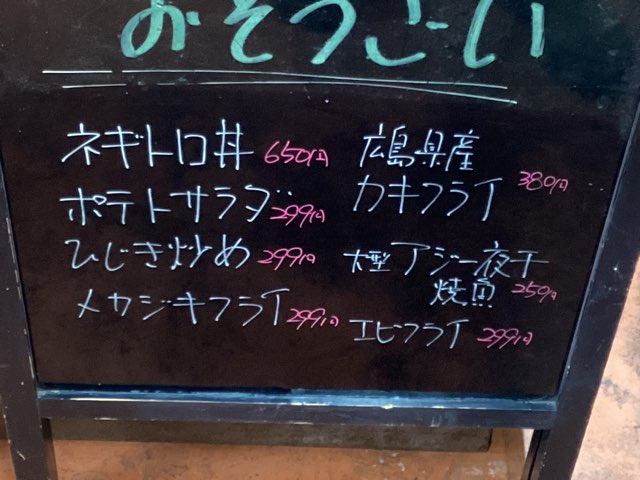 おそうざい
ネギトロ丼 650円
ポテトサラダ 299円
ひじき炒め 299円
メカジキフライ 299円
広島県産
カキフライ 380円
大型アジ一夜干
焼魚 259円
エビフライ 299円